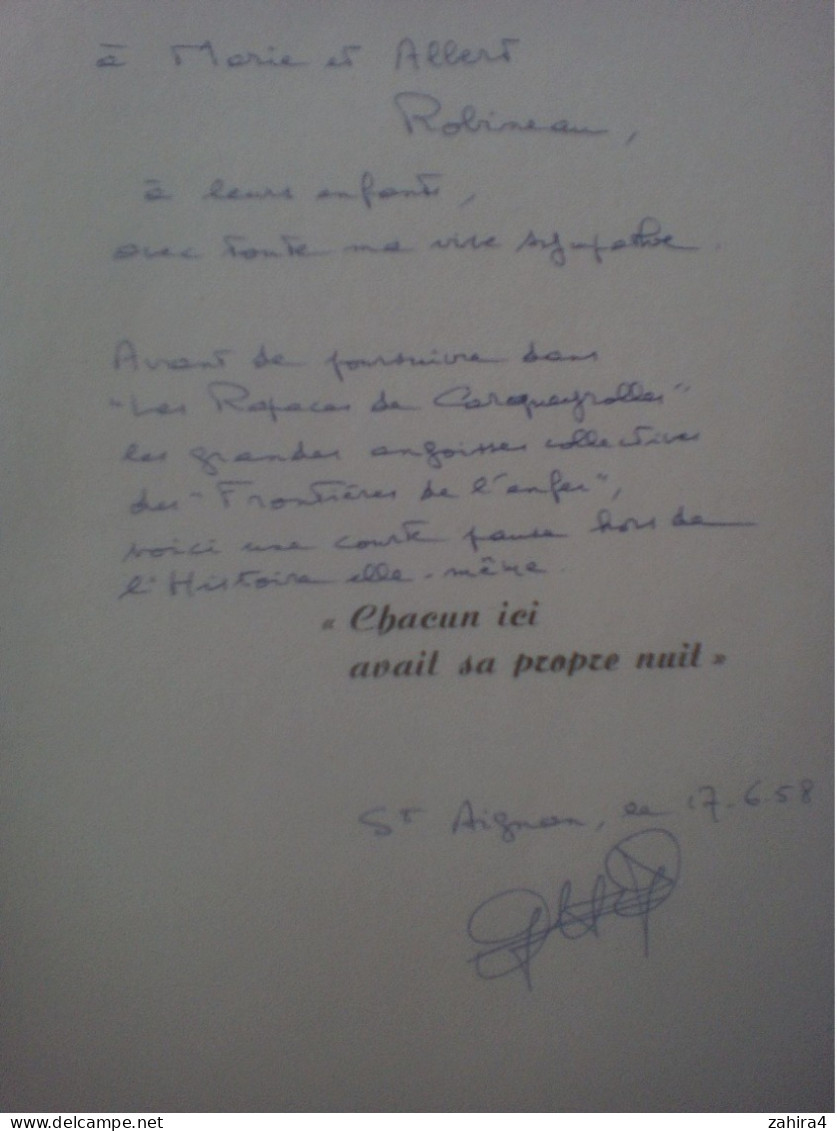 à Marie et Albert
Robineau,
à leurs enfants,
avec toute ma vive sympathie.
Avant de poursuivre dans
"Les Rapaces de Carqueyrolles"
les grandes angoisses collectives
des "Frontières de l'enfer",
voici une courte pause hors de
l'Histoire elle-même.
« Chacun ici
avait sa propre nuit »
St Aignan, le 17.6.58
www.delcampe.net
zahira4